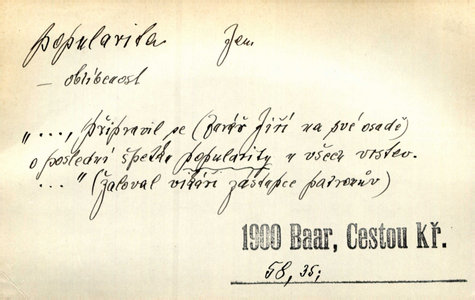 popularita žen.
– oblíbenost
„..., připravil se (farář Jiří na své osadě)
o poslední špetku popularity u všech vrstev.
..." (žaloval vikáři zástupce patronův)
1900 Baar, Cestou Kř.
58, 35;